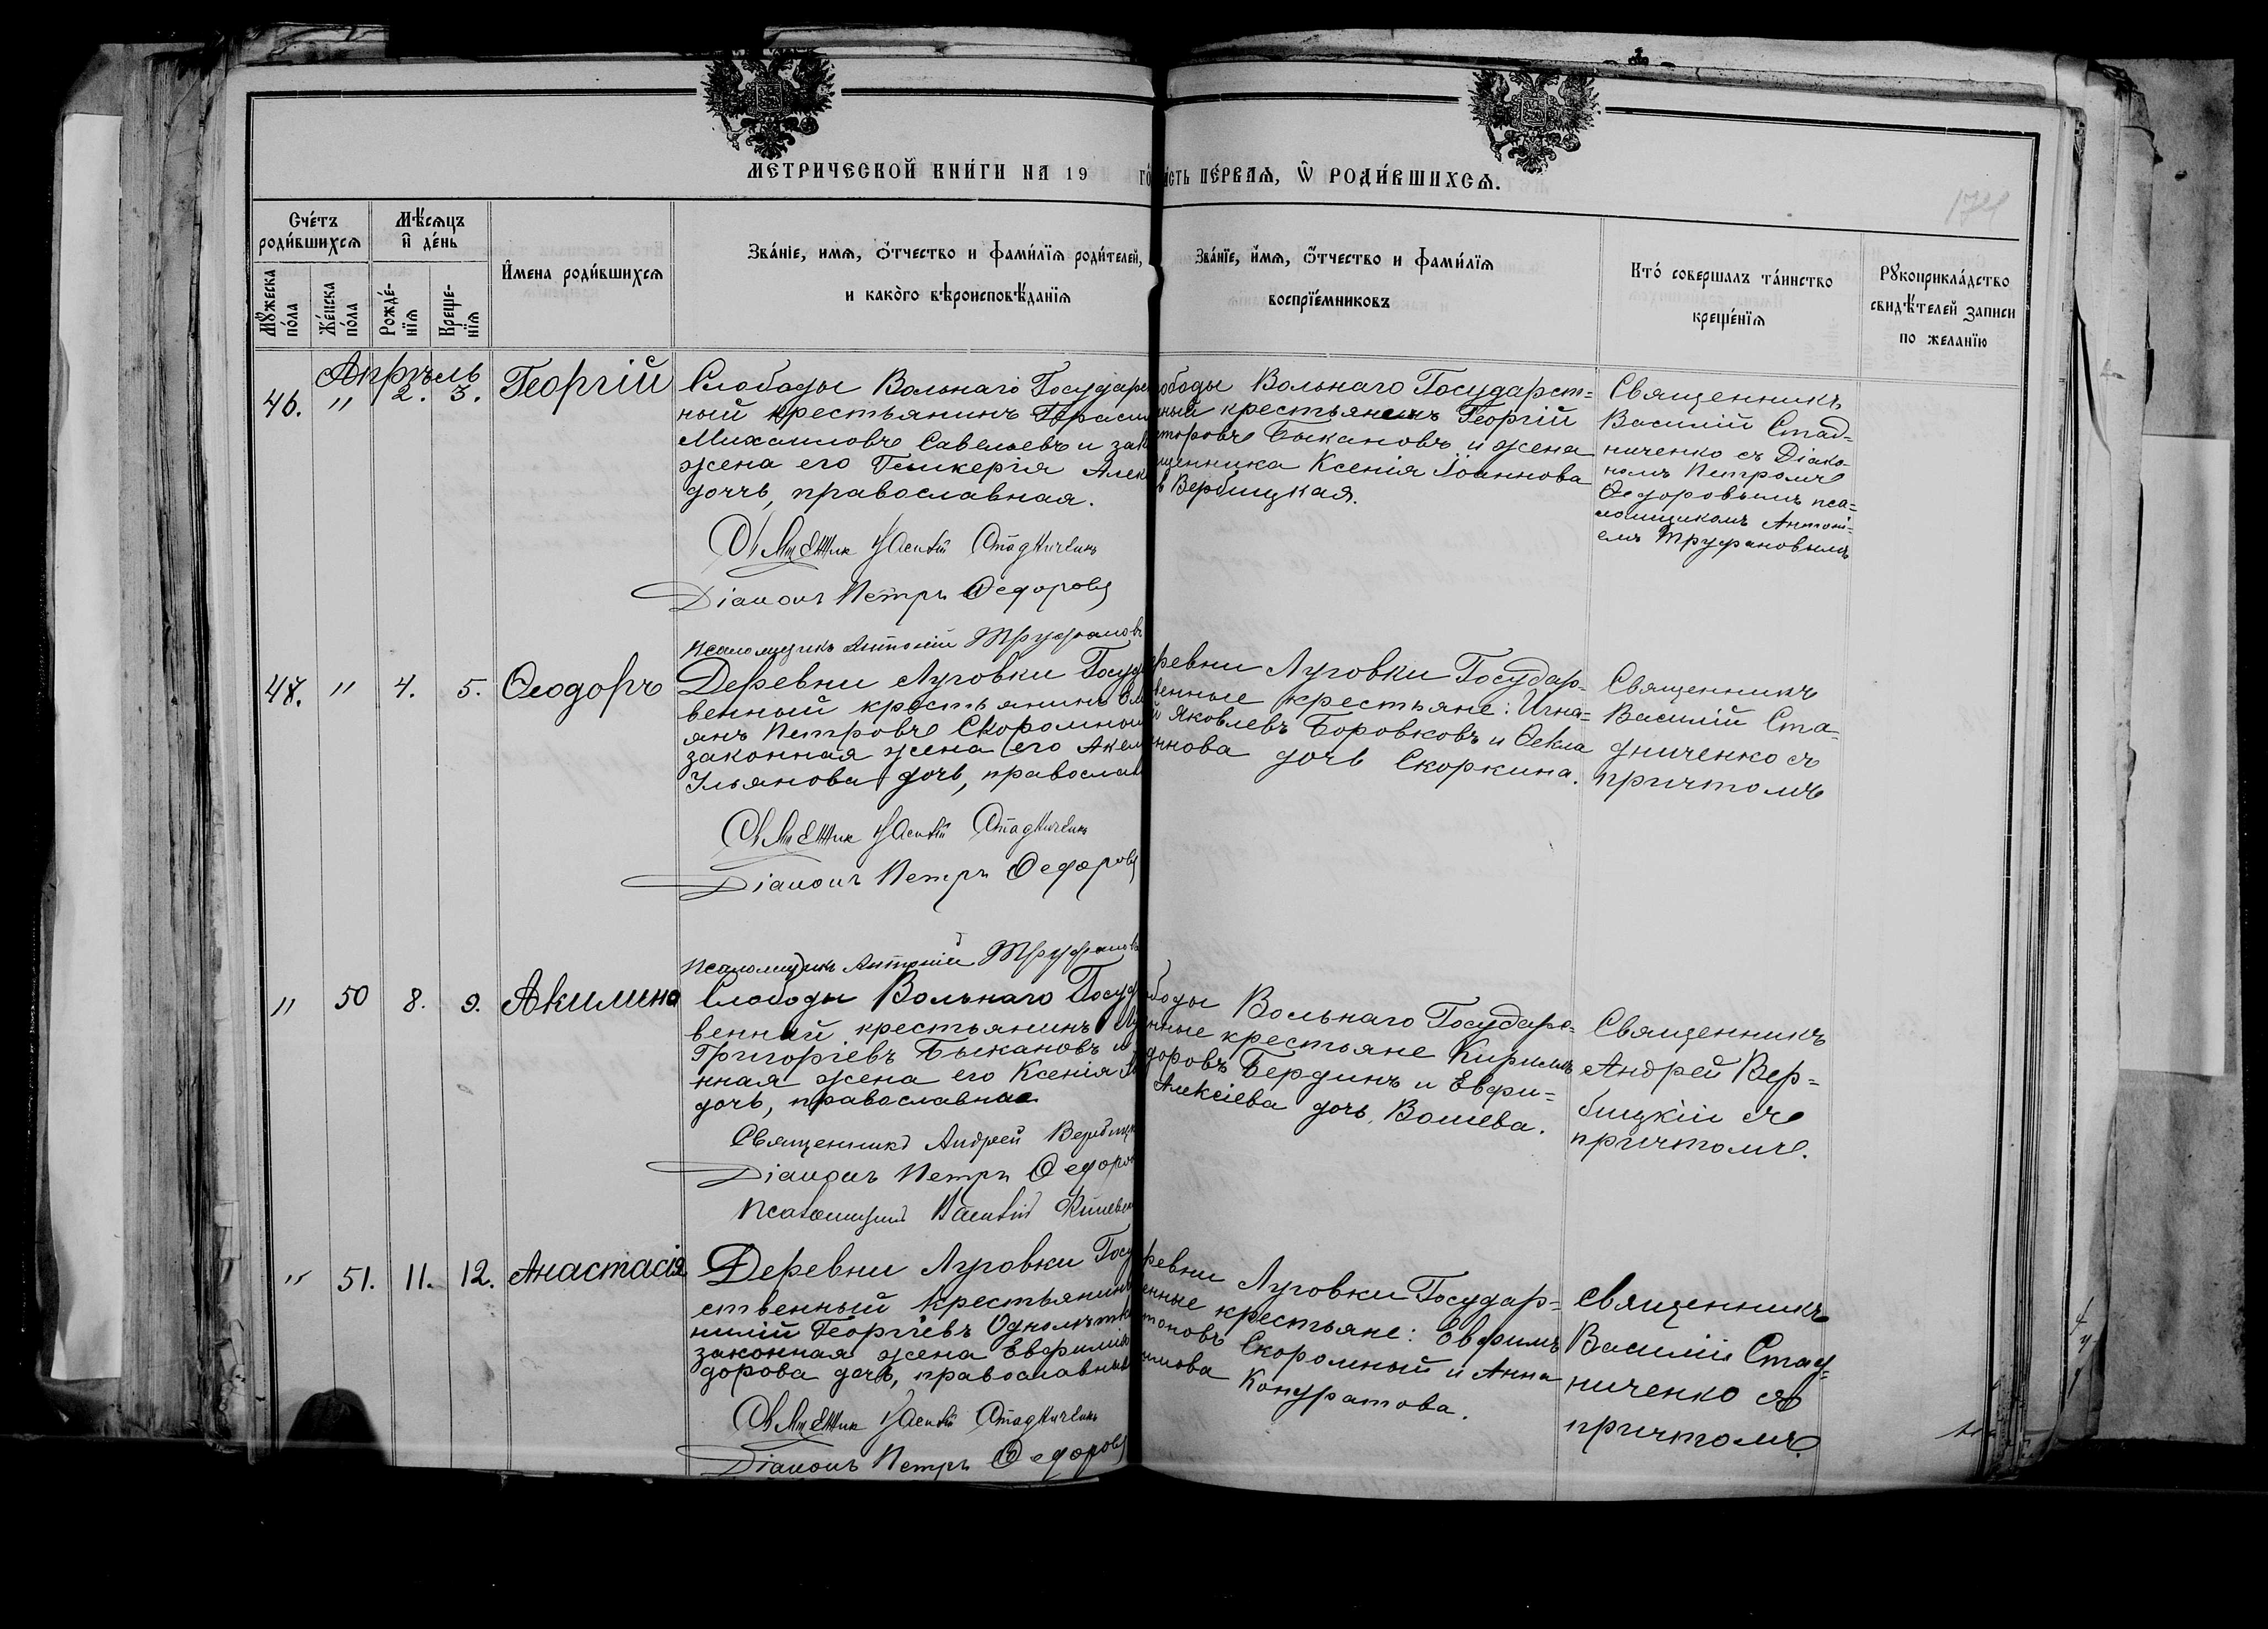 МЕТРИЧЕСКОЙ КНИ́ГИ НА 19 го
сть ПЕ́РВАЯ, Ѡ҆ РОДИ́ВШИХСЯ.
174
Сче́тъ родившихся
Мꙋ́жеска по́ла
Же́нска по́ла
Мѣ́сяцъ и҆ де́нь
Рожде́-нїя
Креще-нїя
И҆мена роди́вшихся
Зва́нїе, имя, ѻ҆́тчество и фами́лїя роди́телей,
и како́го вѣроисповѣ́данїя
Зва́нїе, и҆́мя, ѻ҆́тчество и фами́лїя
воспрїе́мниковъ
Кто̀ соверша́лъ та́инство
креще́нїя
Рꙋкоприкла́дство
свидѣ́телей записи
по желанїю
Апрѣль
46. " 2. 3. Георгій
Слободы Вольнаго Государс
ный крестьянинъ Гераси
Михаиловъ Савельевъ и зак
жена его Гликерія Алек
дочь, православная.
Діаконъ Петръ Ѳедоровъ
Псаломщикъ Антоній Труфановъ
ободы Вольнаго Государст=
ный крестьянинъ Георгій
торовъ Быкановъ и жена
щенника Ксенія Іоаннова
Вербицкая.
Священникъ
Василій Стад=
ниченко съ Діако-
номъ Петромъ
Ѳедоровымъ пса=
ломщикомъ Антоні=
емъ Труфановымъ
47. " 4. 5. Ѳеодоръ
Деревни Луговки Госуд
венный крестьянинъ
янъ Петровъ Скоромный
законная жена его Акел
Ульянова дочь, православ
Діаконъ Петръ Ѳедоровъ
Псаломщикъ Антоній Труфановъ
ревни Луговки Государ-
венные крестьяне: Игна=
Яковлевъ Боровковъ и Ѳекла
ннова дочь Скоркина.
Священникъ
Василій Ста-
дниченко съ
причтомъ
" 50 8. 9. Акилина
Слободы Вольнаго Госуд
венный крестьянинъ
Григоріевъ Быкановъ и
нная жена его Ксенія
дочь, православная
Священникъ Андрей Вербицк
Діаконъ Петръ Ѳедоров
Псаломщикъ Василій
ободы Вольнаго Государс-
нные крестьяне Кирилъ
доровъ Бердинъ и Евфи=
Алексіева дочь Вошева.
Священникъ
Андрей Вер=
бицкій съ
причтомъ.
" 51. 11. 12. Анастасія
Деревни Луговки Госу
ственный крестьянинъ
нилій Георгіевъ
законная жена Евфимія
дорова дочь, православныя
Діаконъ Петръ Ѳедоровъ
ревни Луговки Государ=
енные крестьяне: Евфимъ
тоновъ Скоромный и Анна
имова Кондратова.
Священникъ
Василій Стад=
ниченко съ
причтомъ.